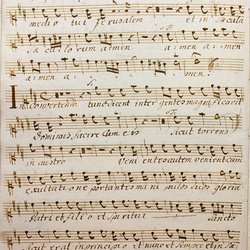 medio tui Jerusalem et in sæcula
sæculorum amen amen a
amen a men.
In convertendo tunc dicent inter gentes magnificavit
Dominus facere cum eis Sicut torrens
in austro Veni entes autem venient cum
exultatione portantes manipulos suos gloria
Patri et filio et Spiritui Sancto
Sicut erat in principio et nunc et semper et in